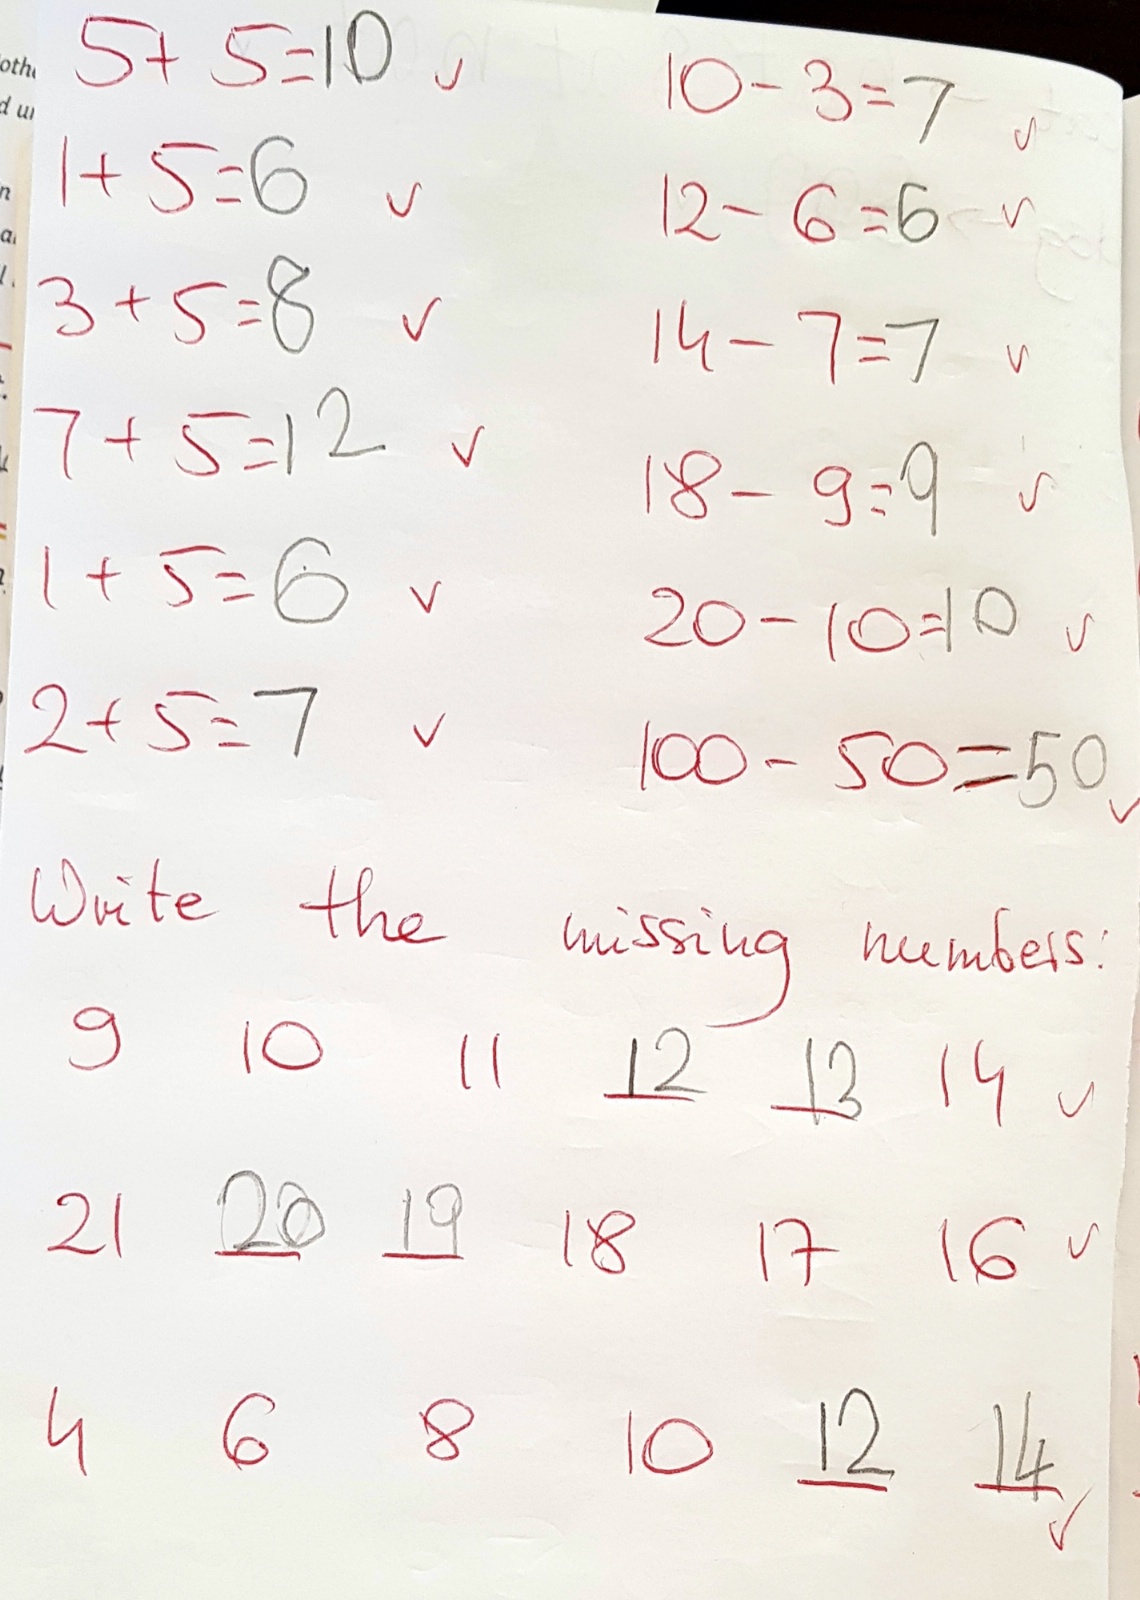 5+ 5=10 ✓
1+ 5=6 ✓
3+5=8 ✓
7+5=12 ✓
1+5=6 ✓
2+5=7 ✓
10-3=7 ✓
12-6=6 ✓
14-7=7 ✓
18-9=9 ✓
20-10=10 ✓
100-50=50 ✓
Write the missing numbers:
9 10 11 12 13 14 ✓
21 20 19 18 17 16 ✓
4 6 8 10 12 14 ✓